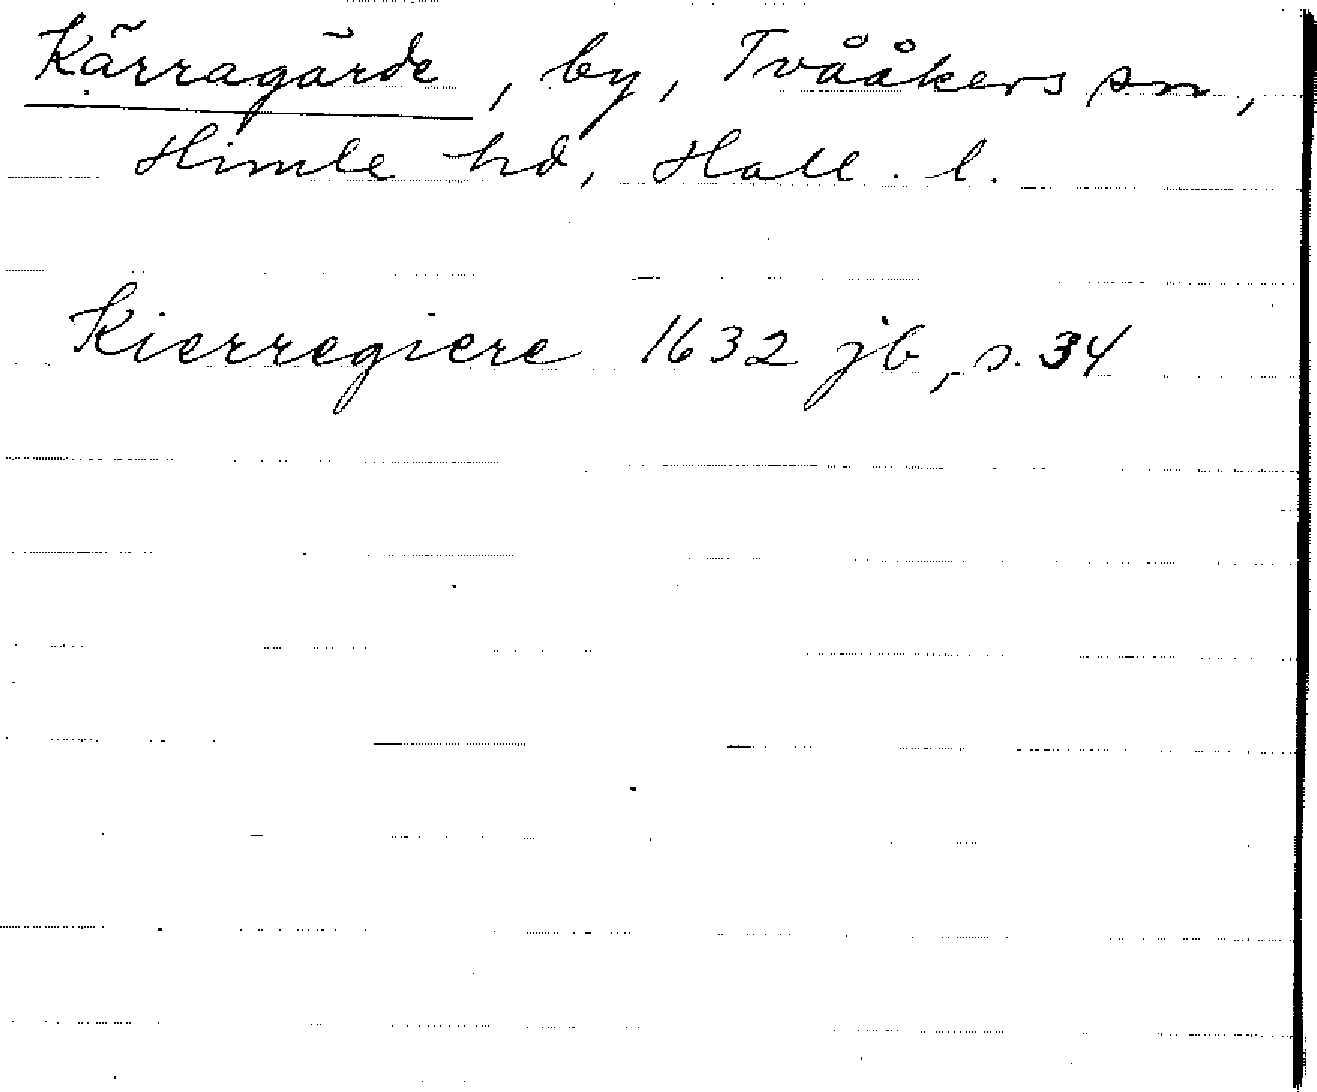 Kärragärde, by, Tvååkers sn,
Himle hd, Hall. l.
Kierregiere 1632 jb, s. 34